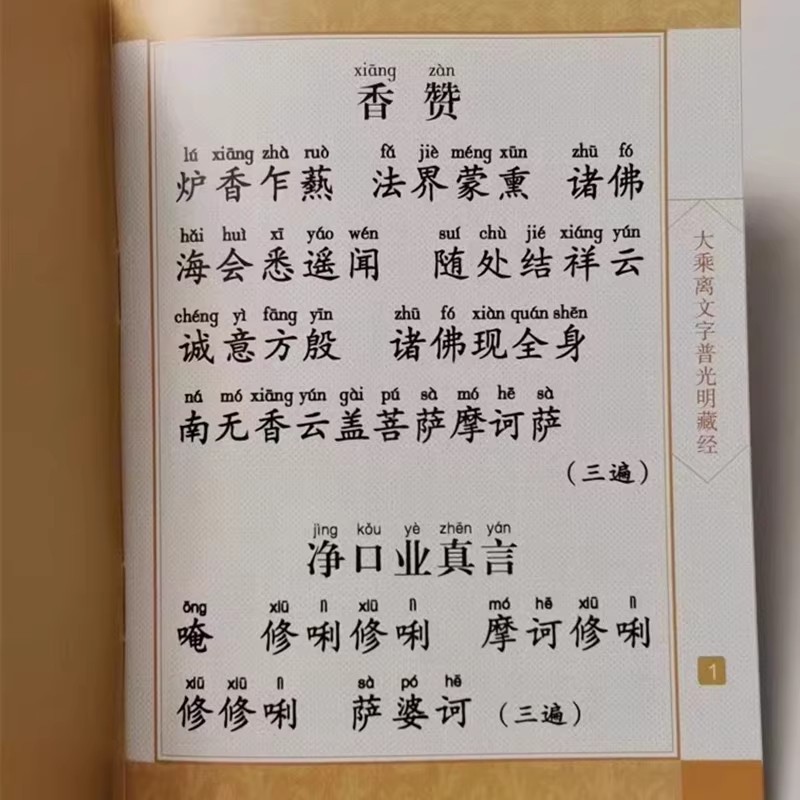 xiāng zàn
香赞
lú xiāng zhà ruò fǎ jiè méng xūn zhū fó
炉香乍爇 法界蒙熏 诸佛
hǎi huì xī yáo wén suí chù jié xiáng yún
海会悉遥闻 随处结祥云
chéng yì fāng yīn zhū fó xiàn quán shēn
诚意方殷 诸佛现全身
ná mó xiāng yún gài pú sà mó hē sà
南无香云盖菩萨摩诃萨
（三遍）
jìng kǒu yè zhēn yán
净口业真言
ōng xiū lì xiū lì mó hē xiū lì
唵 修唎修唎 摩诃修唎
xiū xiū lì sà pó hē
修修唎 萨婆诃（三遍）
大乘离文字普光明藏经
1